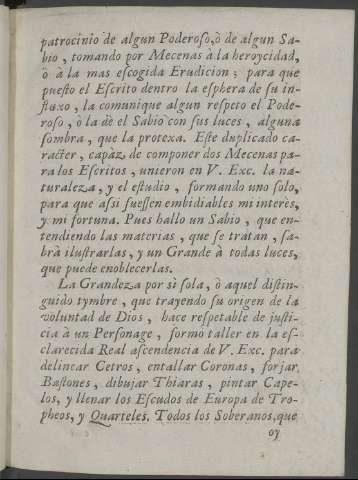 patrocinio de algun Poderoso, ò de algun Sa-
bio, tomando por Mecenas à la heroycidad,
ò à la mas escogida Erudicion; para que
puesto el Escrito dentro la esphera de su in-
fluxo, la comunique algun respeto el Pode-
roso, ò la dè el Sabio con sus luces, alguna
sombra, que la protexa. Este duplicado ca-
racter, capàz de componer dos Mecenas pa-
ra los Escritos, unieron en V. Exc. la na-
turaleza, y el estudio, formando uno solo,
para que assi fuessen embidiables mi interès,
y mi fortuna. Pues hallo un Sabio, que en-
tendiendo las materias, que se tratan, sa-
brà ilustrarlas, y un Grande à todas luces,
que puede enoblecerlas.
La Grandeza por sì sola, ò aquel distin-
guido tymbre, que trayendo su origen de la
voluntad de Dios, hace respetable de justi-
cia à un Personage, formo taller en la es-
clarecida Real ascendencia de V. Exc. para
delinear Cetros, entallar Coronas, forjar
Bastones, dibujar Thiaras, pintar Cape-
los, y llenar los Escudos de Europa de Tro-
pheos, y Quarteles. Todos los Soberanos, que
oy